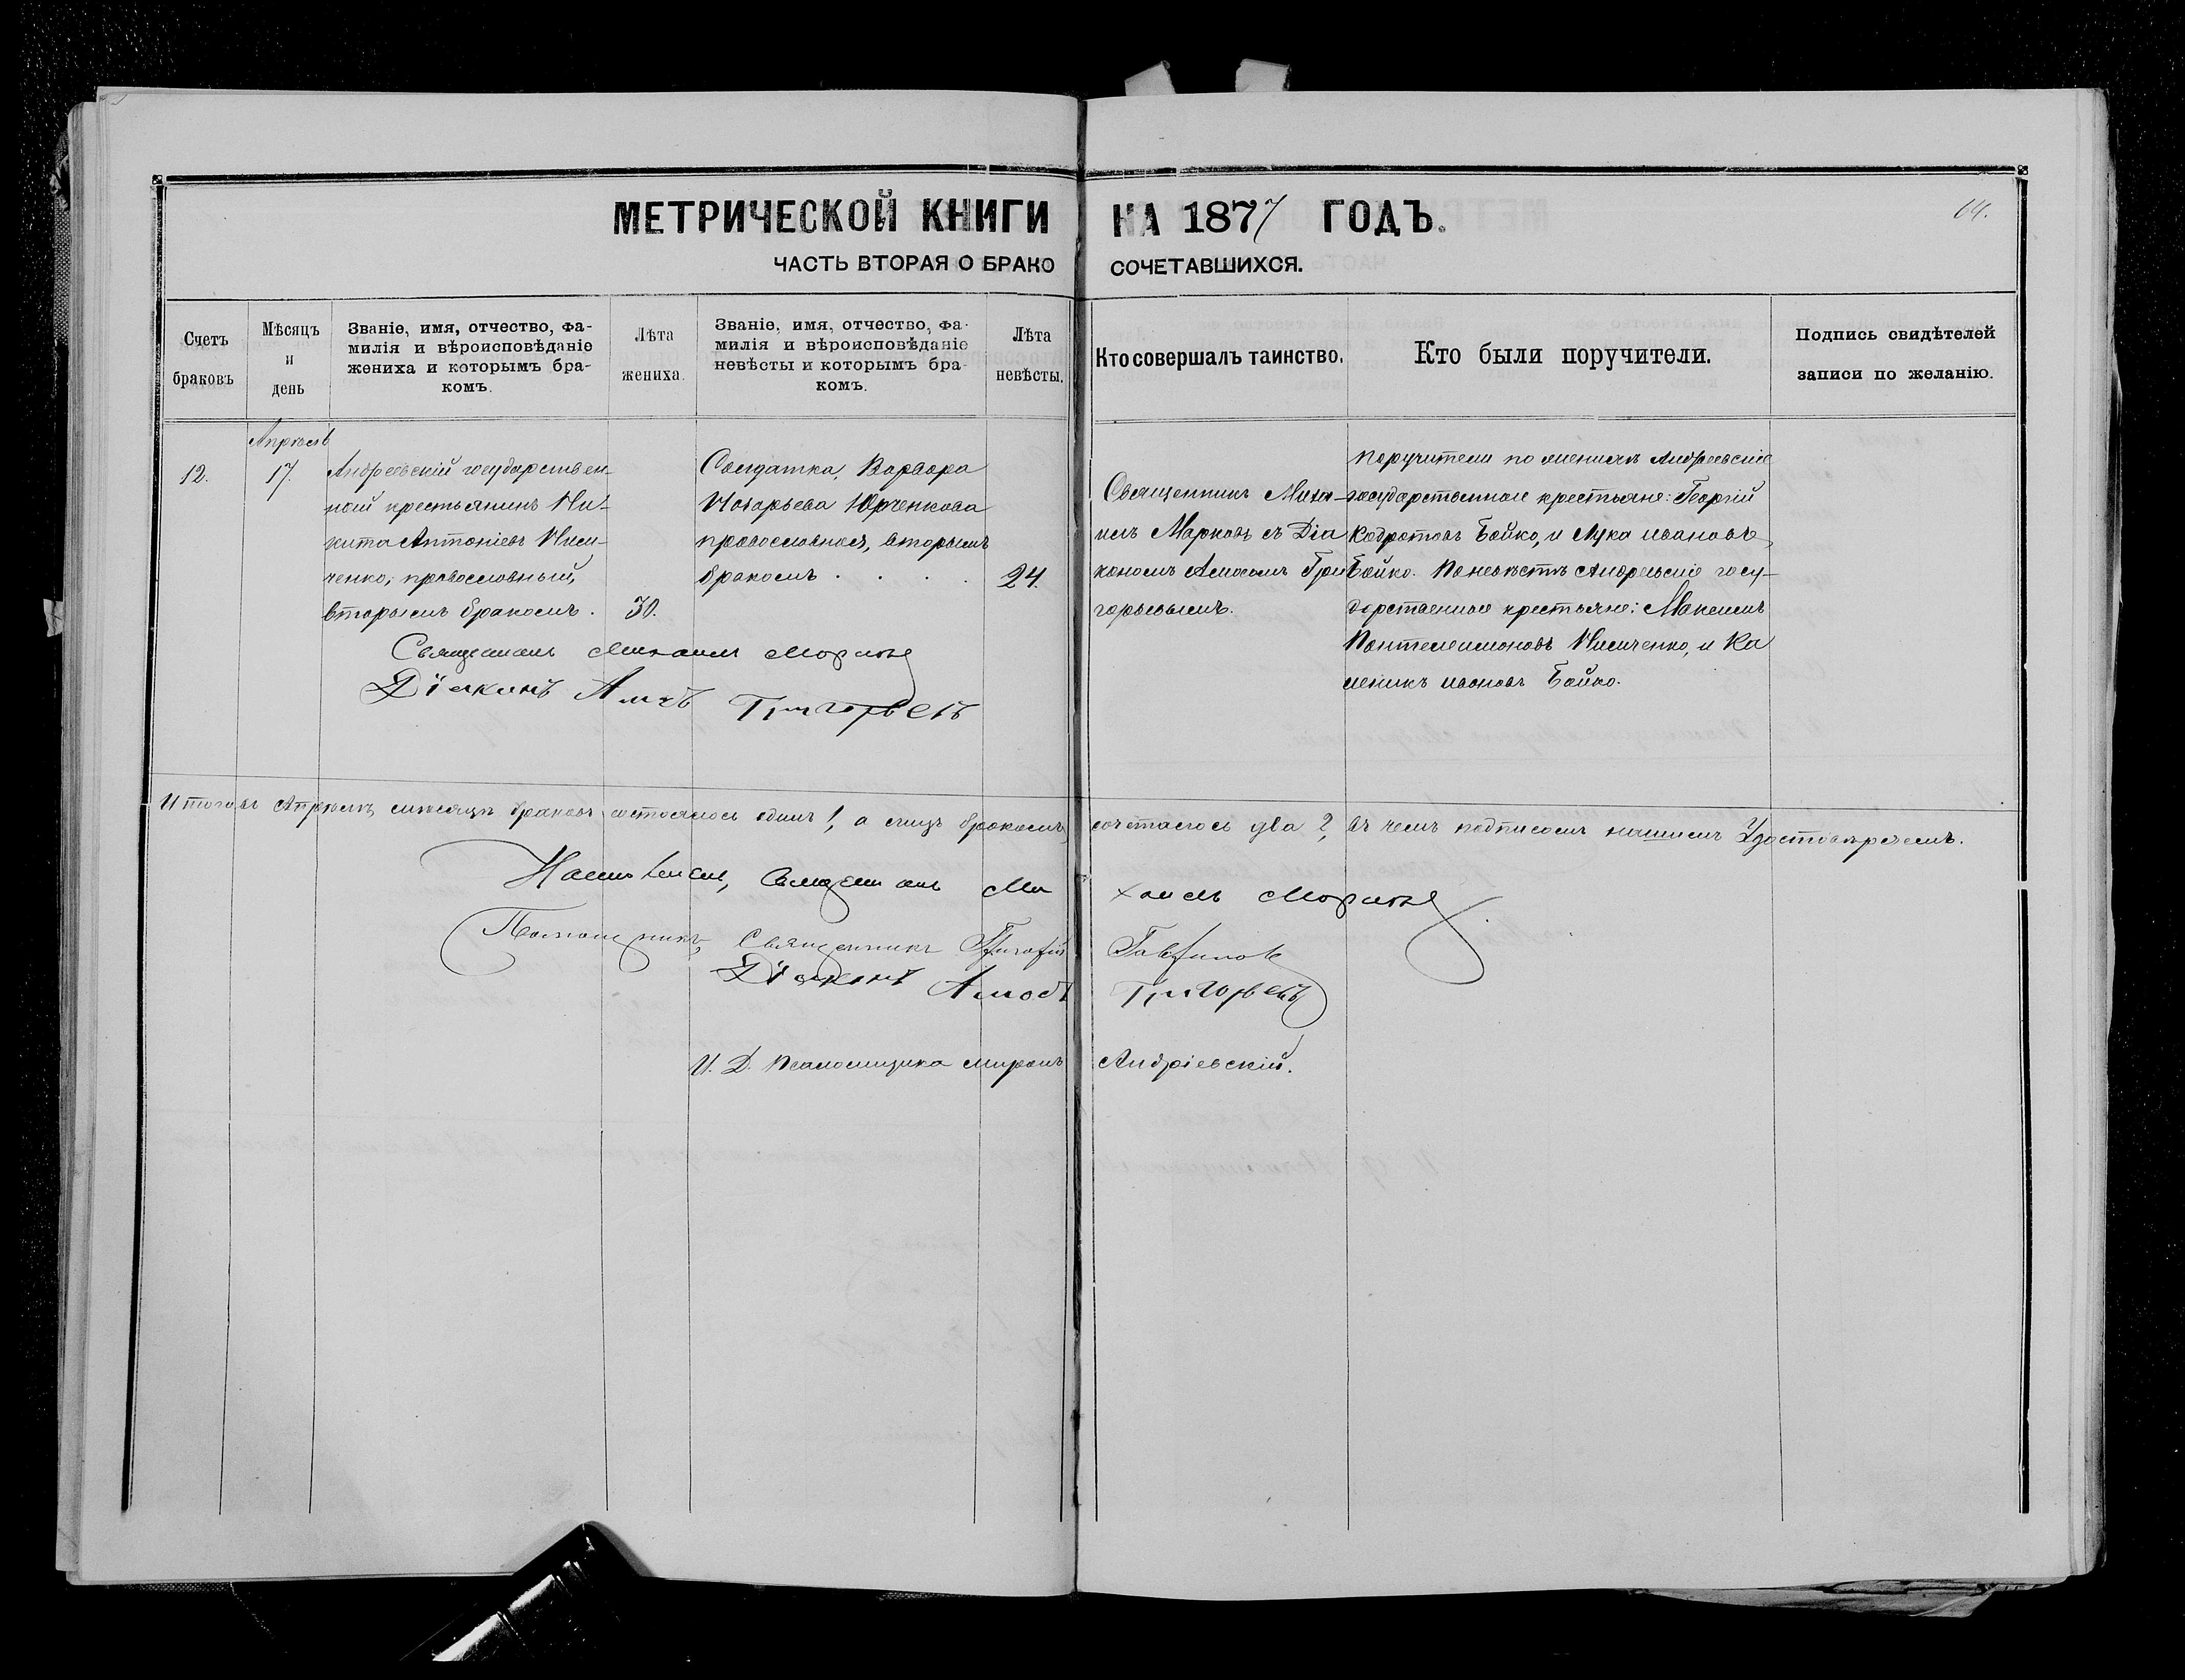 МЕТРИЧЕСКОЙ КНИГИ НА 1877 ГОДЪ.
64.
ЧАСТЬ ВТОРАЯ О БРАКОСОЧЕТАВШИХСЯ.
Счетъ браковъ
Мѣсяцъ и день
Званіе, имя, отчество, фа-
милія и вѣроисповѣданіе
жениха и которымъ бра-
комъ.
Лѣта жениха.
Званіе, имя, отчество, фа-
милія и вѣроисповѣданіе
невѣсты и которымъ бра-
комъ.
Лѣта невѣсты.
Кто совершалъ таинство.
Кто были поручители.
Подпись свидѣтелей
записи по желанію.
12.
Апрѣль
17.
Андреевскій государствен-
ной крестьянинъ Ни-
кита Антоніевъ
православный,
вторымъ бракомъ.
30.
Солдатка, Варвара
Назарьева Юрченкова
православная, вторымъ
бракомъ . . . .
24.
Священникъ Миха-
илъ Марковъ съ Діа
кономъ Амосомъ Гри
горьевымъ.
Поручители по женихѣ Андреевскіе
государственные крестьяне: Георгій
Бойко, и Лука Ивановъ
Бойко. По невѣстѣ Андреевскіе госу-
дарственные крестьяне: Максимъ
Пантелеимоновъ и Ка
леникъ Ивановъ Бойко.
Священникъ Михаилъ Марковъ
Діаконъ Амосъ Григорьевъ
Итого въ Апрѣлѣ мѣсяцѣ браковъ состоялось одинъ 1, а лицъ бракомъ сочеталось два 2, въ чемъ подписомъ нашимъ удостовѣряемъ.
Настоятель, Священникъ Михаилъ Марковъ
Помощникъ, Священникъ Григорій Гавриловъ
Діаконъ Амосъ Григорьевъ
И. Д. Псаломщика Миронъ Андріевскій.